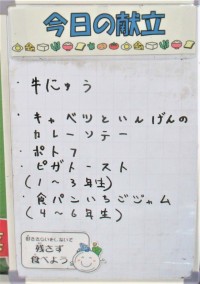 今日の献立
・牛にゅう
・キャベツといんげんの
カレーソテー
・ポトフ
・ピザトースト
(1～3年生)
・食パンいちごジャム
(4～6年生)
残さず
食べよう。